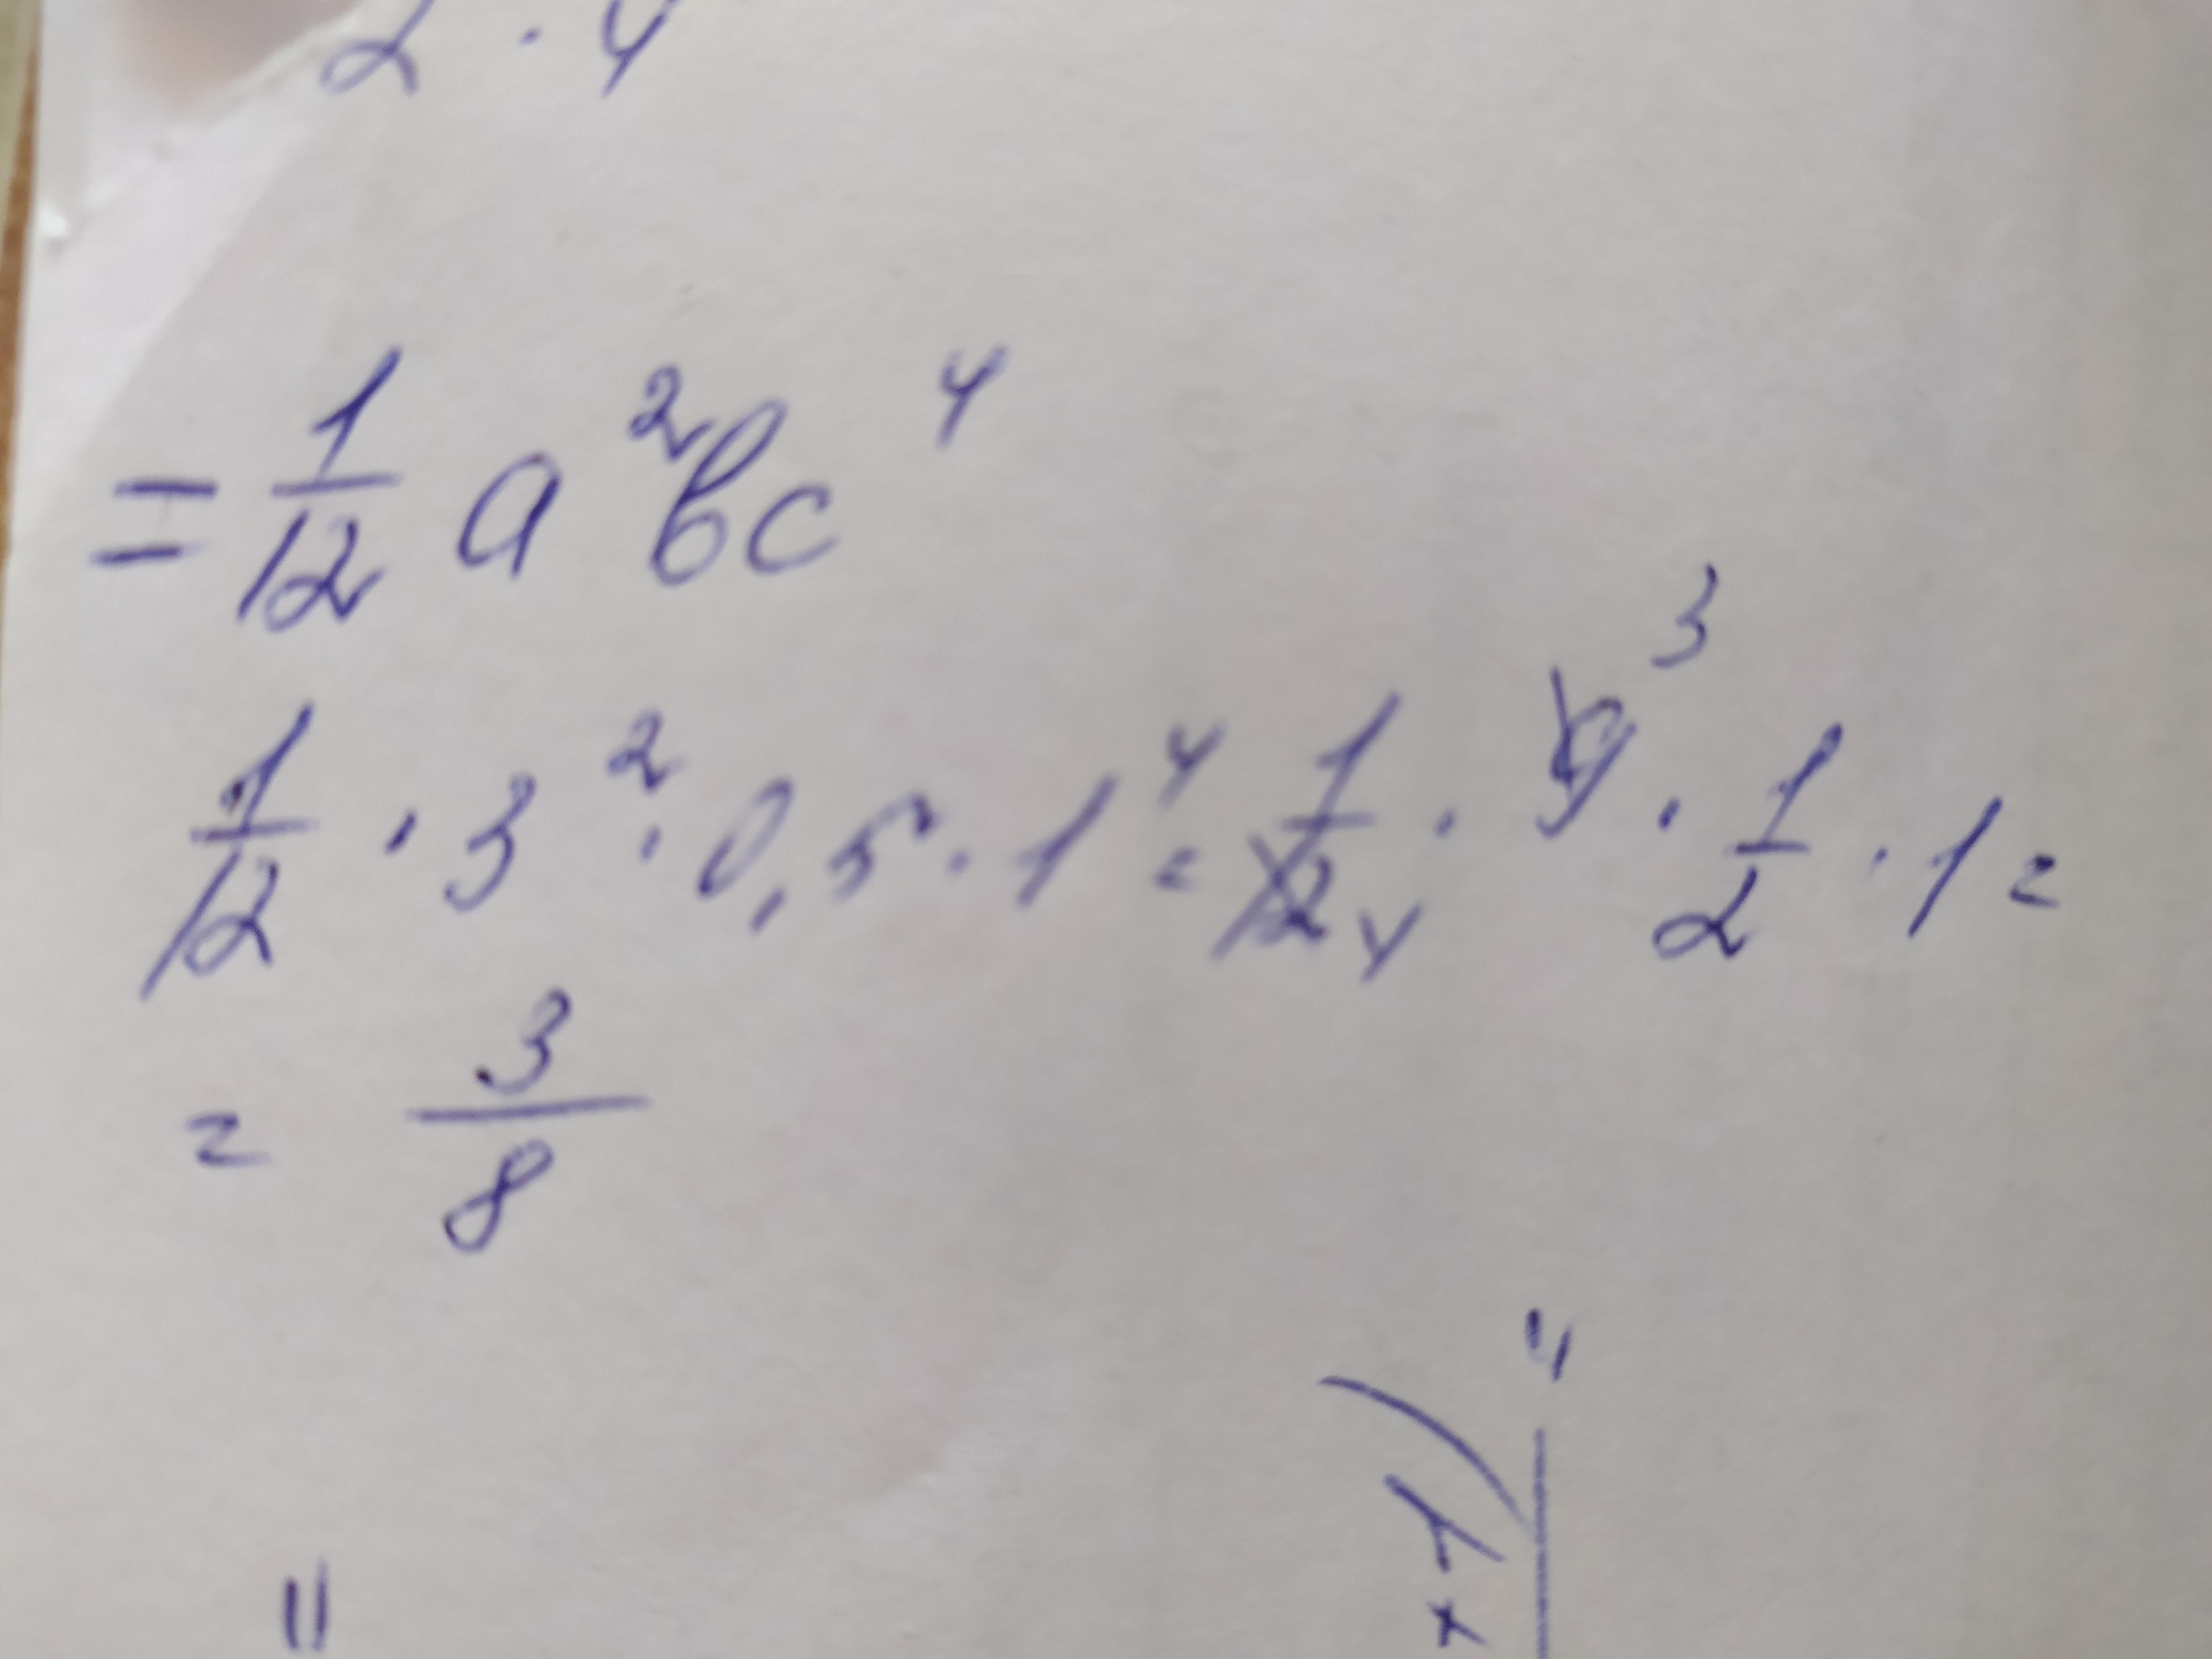 2 · 4
= 1/12 a²bc⁴
1/12 · 3² · 0,5 · 1⁴ = 1/12 4 · 9 3 · 1/2 · 1 =
= 3/8